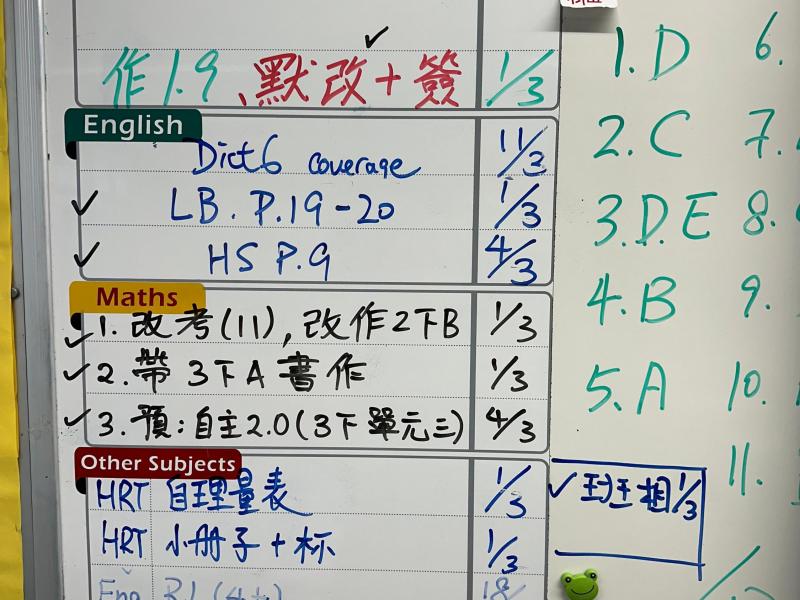 作1.9、默改+簽 1/3
English
Dict6 coverage 11/3
LB. P.19-20 1/3
HS P.9 4/3
Maths
1. 改考(11), 改作2下B 1/3
2. 帶3下A書作 1/3
3. 預:自主2.0(3下單元三) 4/3
Other Subjects
HRT 自理量表 1/3
HRT 小册子+杯 1/3
Eng R1 18/
1. D
2. C
3. D.E
4. B
5. A
6.
7.
8.
9.
10.
11.
相 1/3